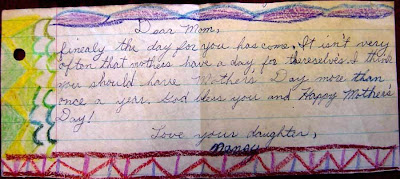 Dear Mom,
finealy the day for you has come. It isn't very
often that mothers have a day for thereselves. I think
you should have Mothers Day more than
once a year. God bless you and Happy Mother's
Day!
Love your daughter,
Nancy